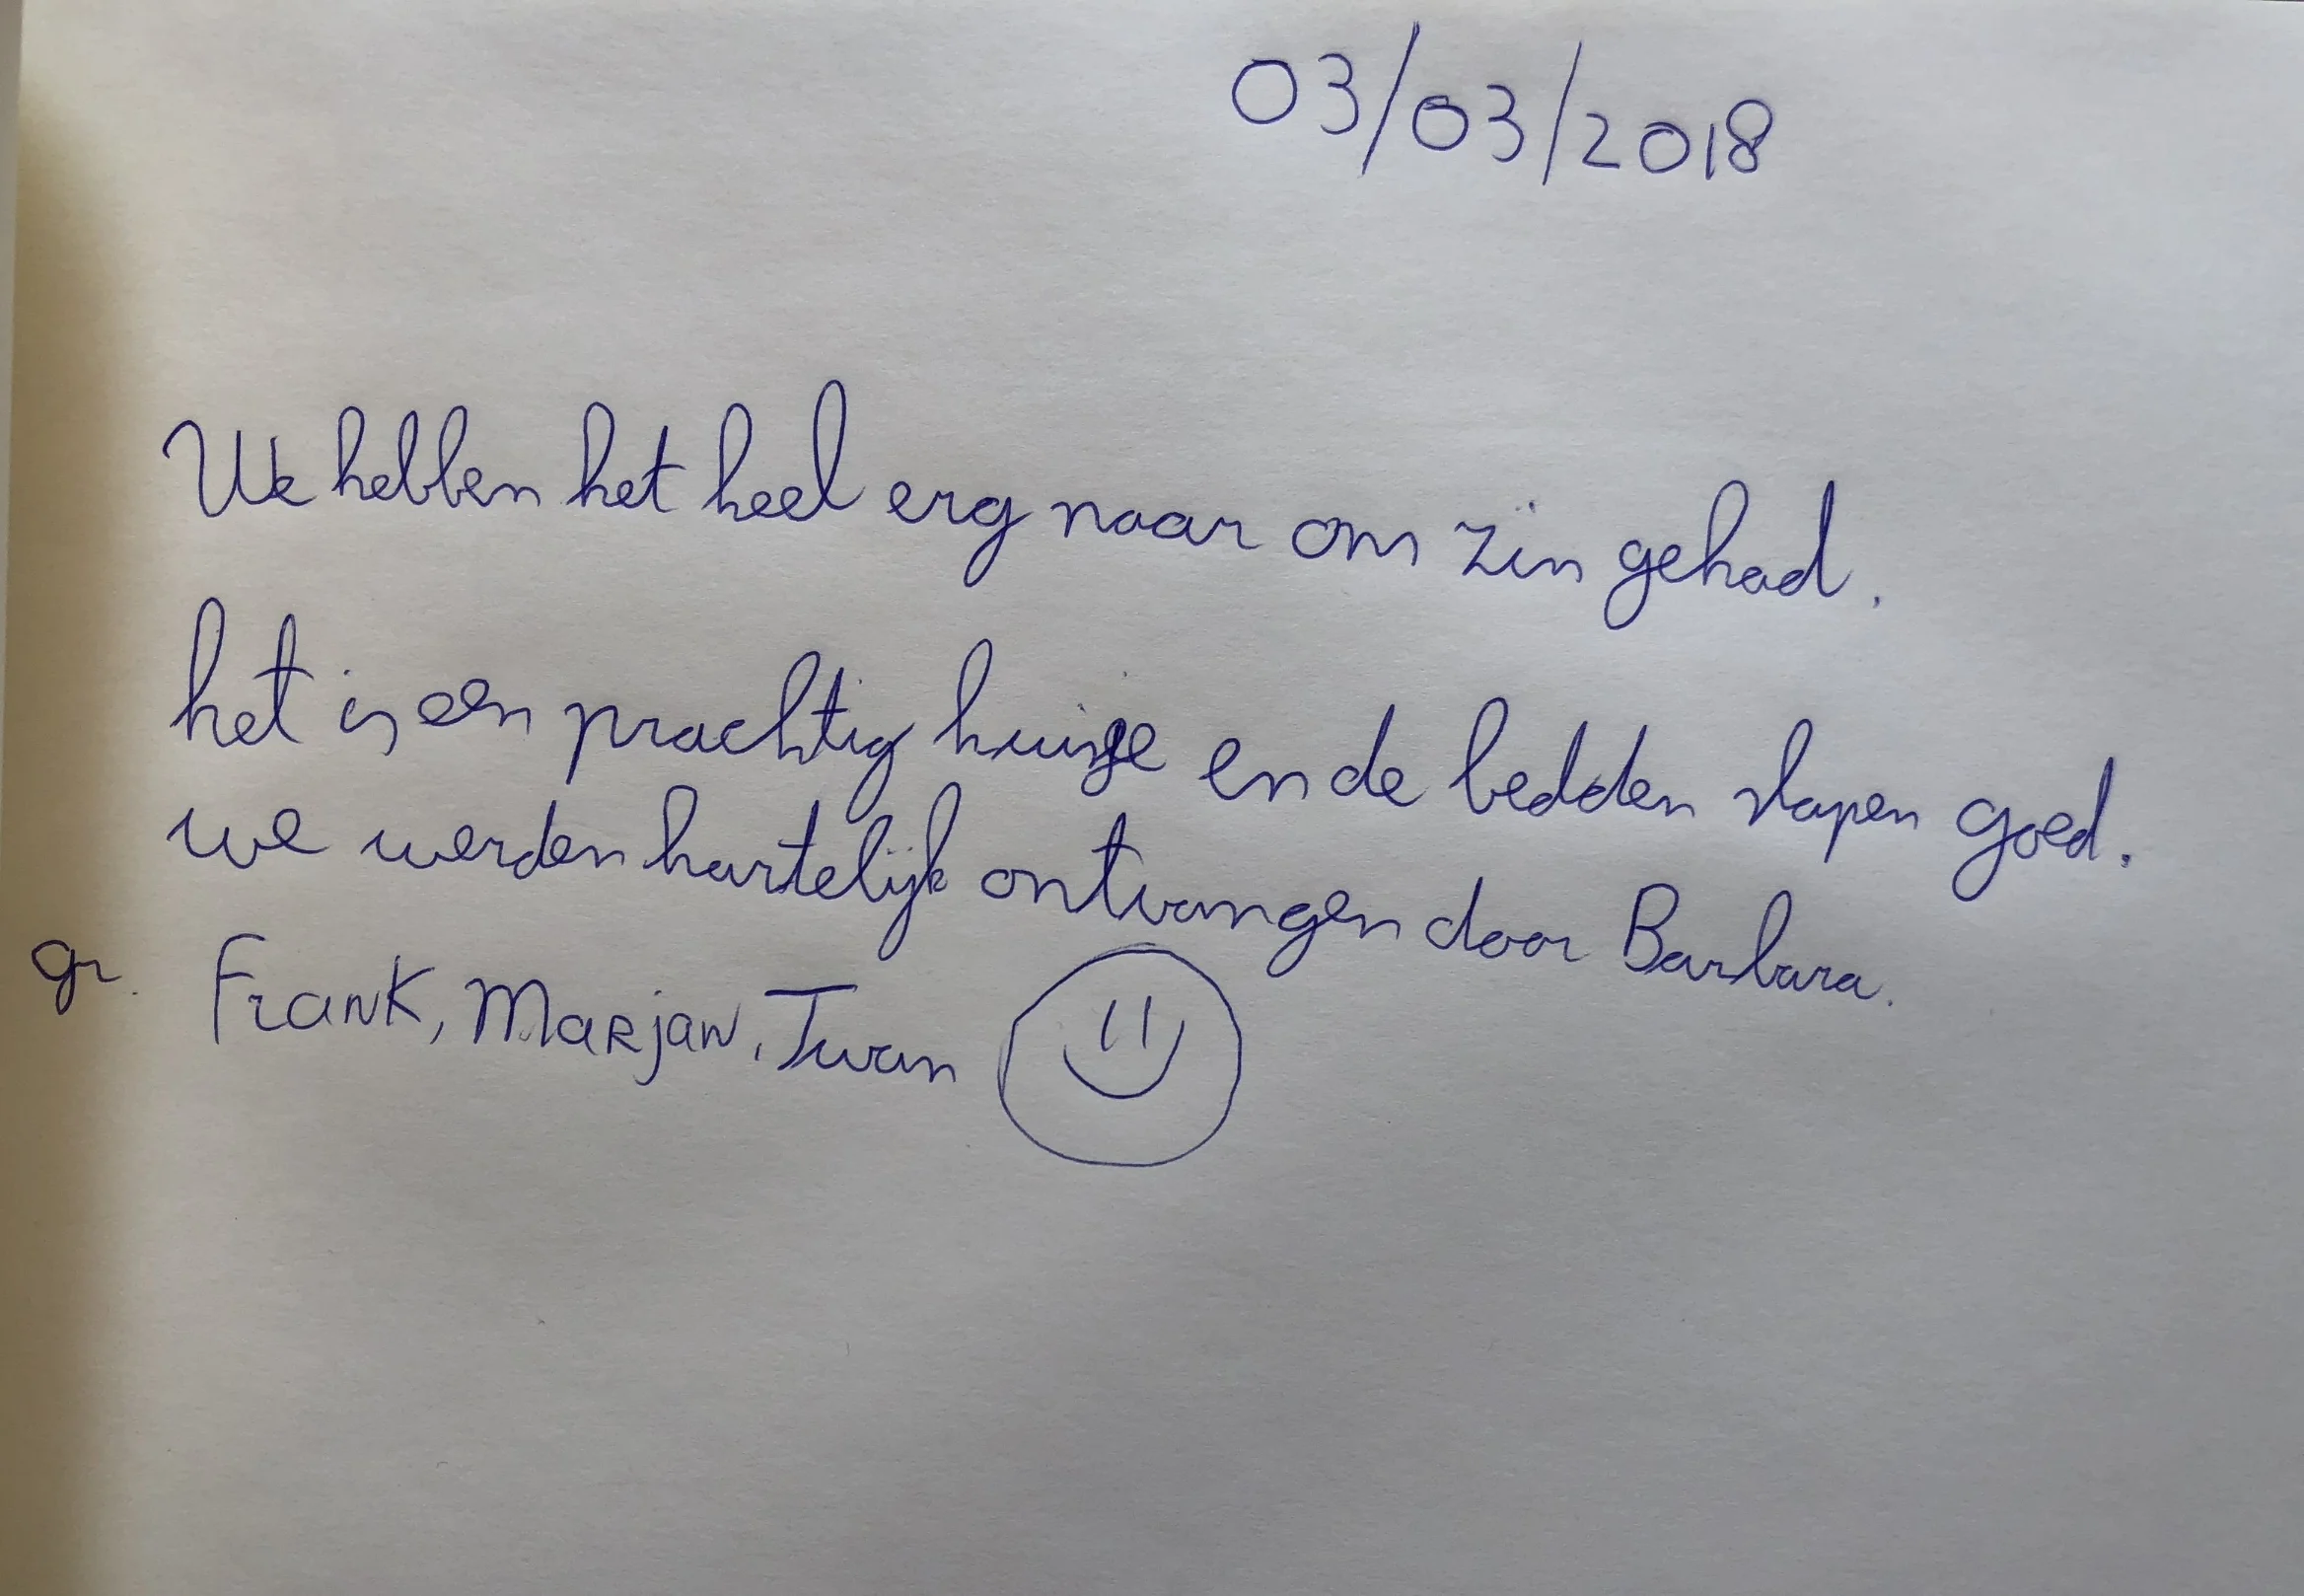 03/03/2018
We hebben het heel erg naar om zin gehad.
het is een prachtig huisje en de bedden slapen goed.
we werden hartelijk ontvangen door Barbara.
gr. Frank, Marjan, Twan